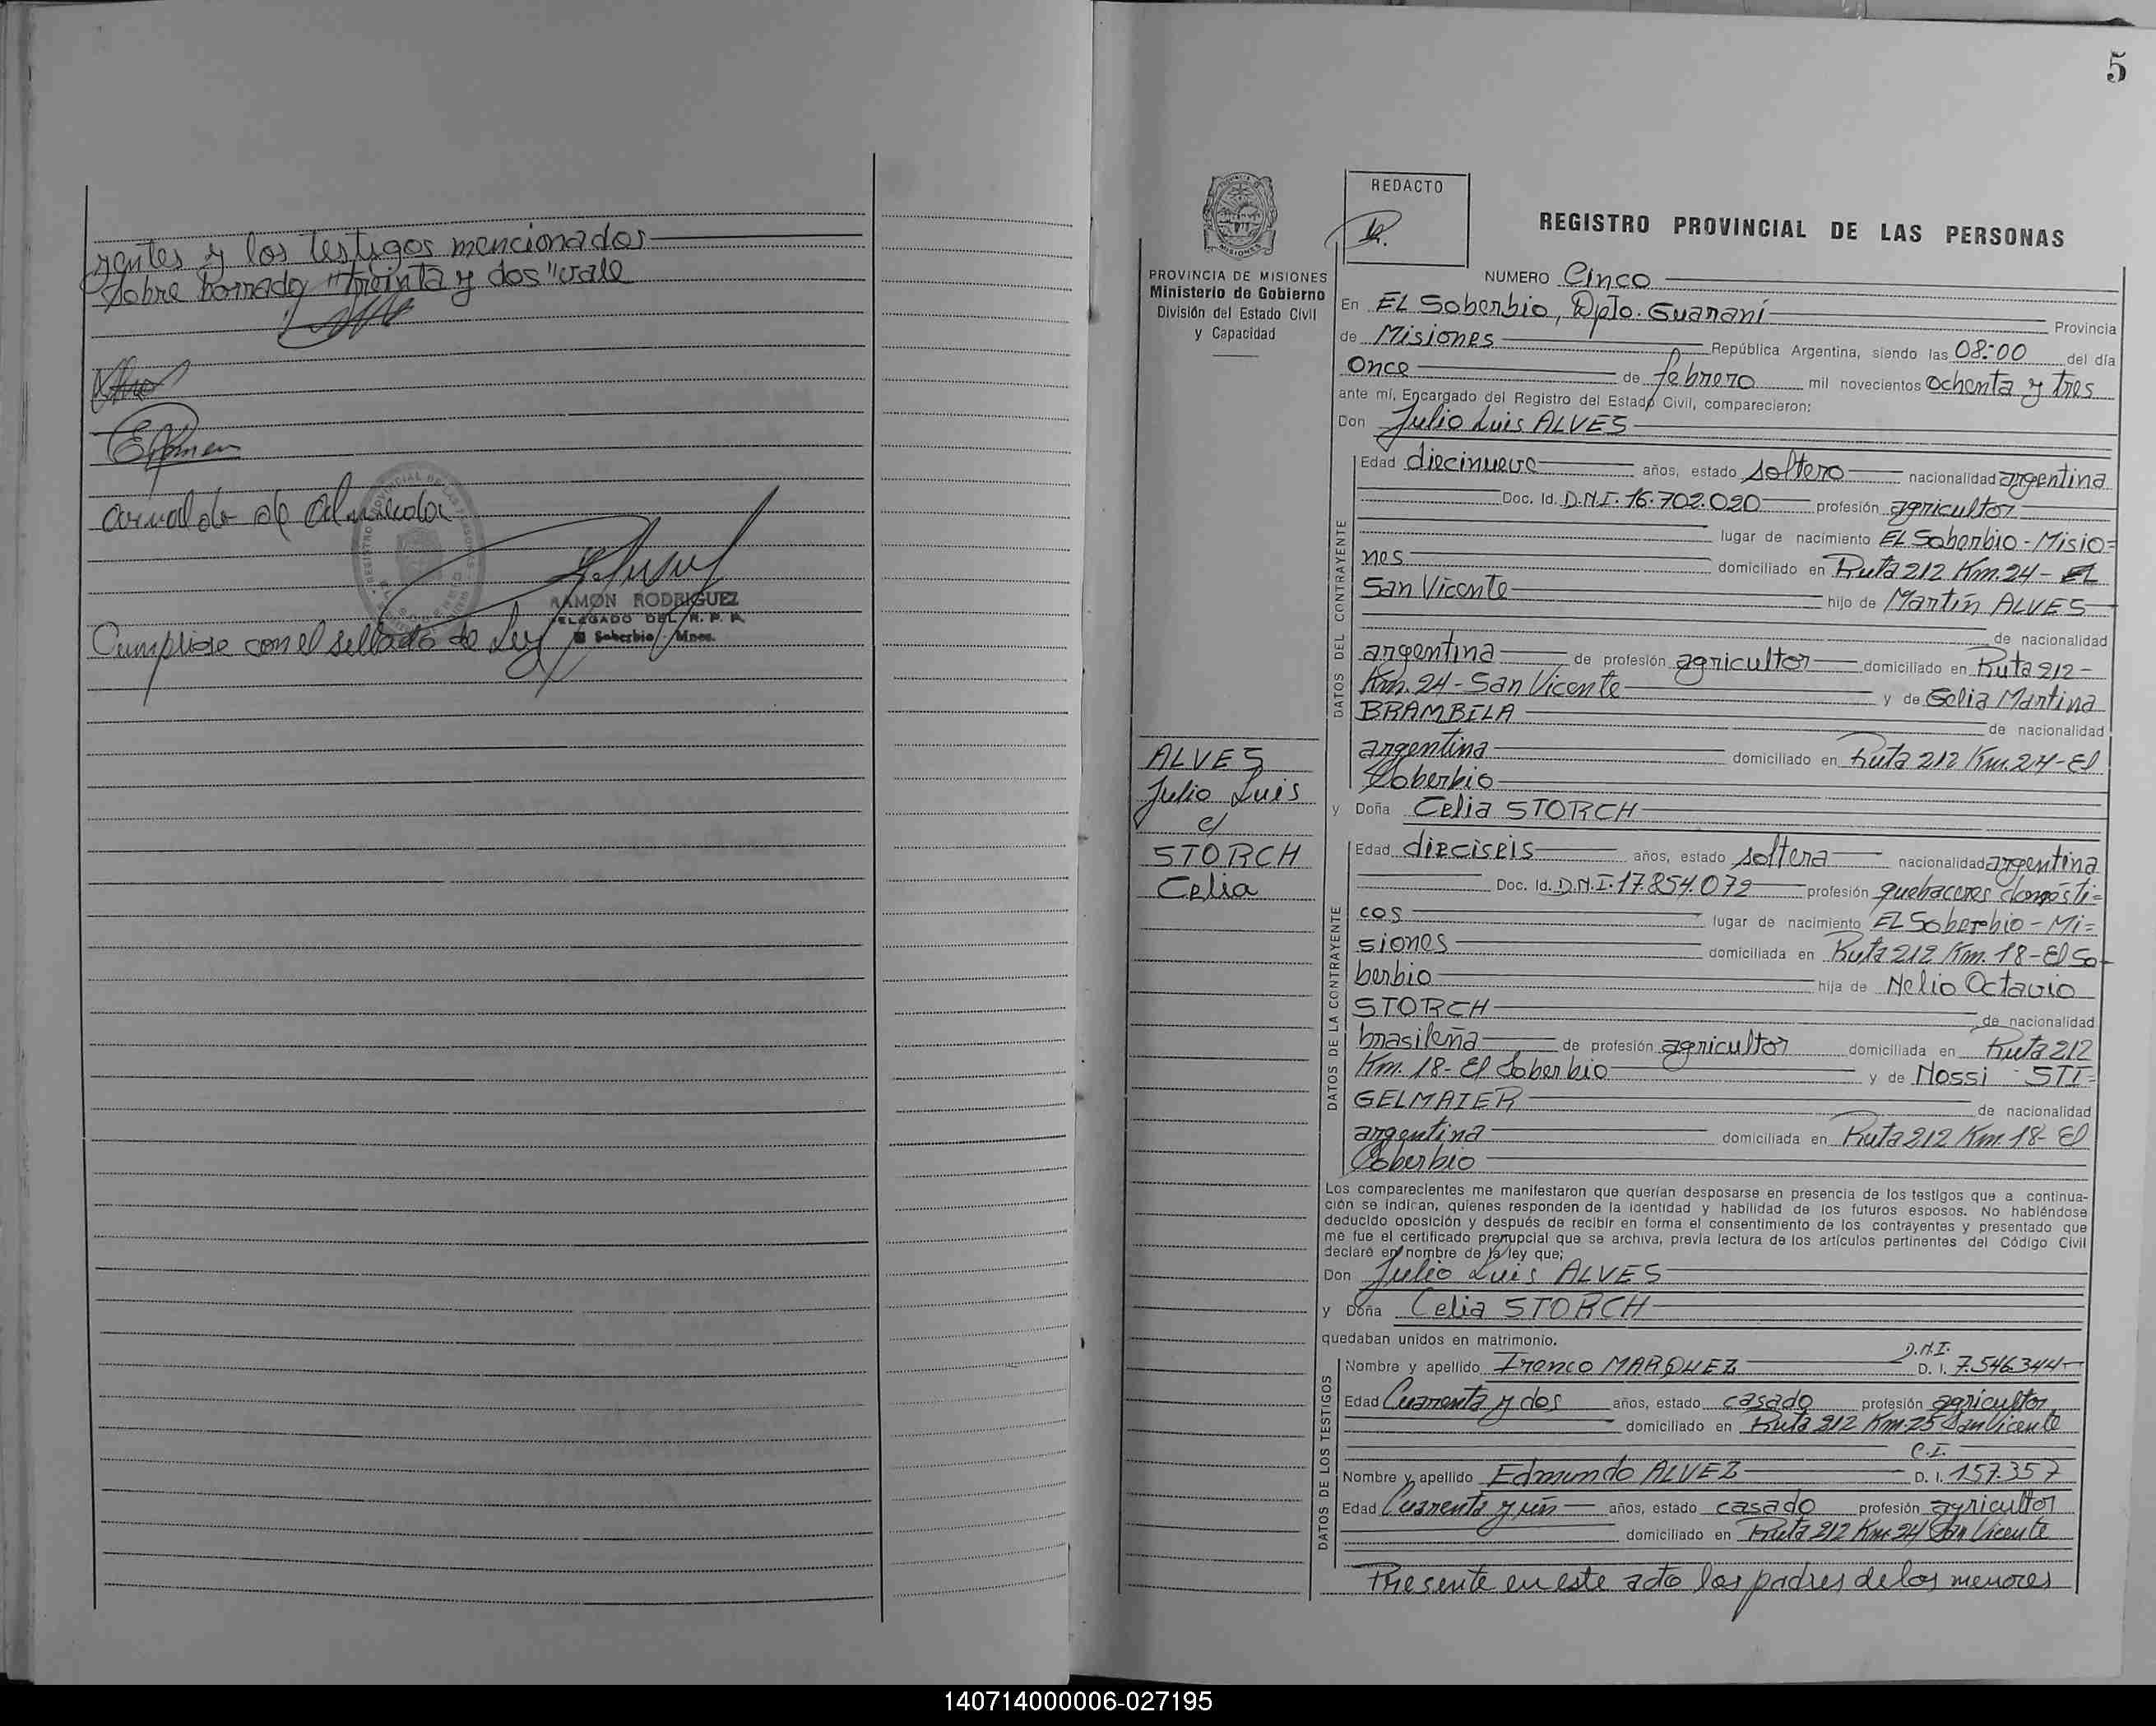 rentes y los testigos mencionados
sobre borrado "treinta y dos" vale
RAMON RODRIGUEZ
DELEGADO DEL R. P. P.
El Soberbio - Mnes.
Cumplióse con el sellado de Ley
5
REDACTO
REGISTRO PROVINCIAL DE LAS PERSONAS
PROVINCIA DE MISIONES
Ministerio de Gobierno
División del Estado Civil
y Capacidad
NUMERO Cinco
En EL Soberbio, Dpto. Guaraní Provincia
de Misiones República Argentina, siendo las 08:00 del día
Once de febrero mil novecientos Ochenta y tres
ante mí, Encargado del Registro del Estado Civil, comparecieron:
Don Julio Luis ALVES
DATOS DEL CONTRAYENTE
Edad diecinueve años, estado soltero nacionalidad argentina
Doc. Id. D.N.I. 16.702.020 profesión agricultor
lugar de nacimiento EL Soberbio - Misio=
nes domiciliado en Ruta 212 Km. 24 - EL
San Vicente hijo de Martín ALVES
de nacionalidad
argentina de profesión agricultor domiciliado en Ruta 212 -
Km. 24 - San Vicente y de Celia Martina
BRAMBILA de nacionalidad
argentina domiciliado en Ruta 212 Km. 24 - El
Soberbio
ALVES
Julio Luis
c/
STORCH
Celia
y Doña Celia STORCH
DATOS DE LA CONTRAYENTE
Edad dieciseis años, estado soltera nacionalidad argentina
Doc. Id. D.N.I. 17.854.072 profesión quehaceres domésti=
cos lugar de nacimiento EL Soberbio - Mi=
siones domiciliada en Ruta 212 Km. 18 - El So-
berbio hija de Nelio Octavio
STORCH de nacionalidad
brasileña de profesión agricultor domiciliada en Ruta 212
Km. 18 - El Soberbio y de Nossi STI=
GELMAIER de nacionalidad
argentina domiciliada en Ruta 212 Km. 18 - El
Soberbio
Los comparecientes me manifestaron que querían desposarse en presencia de los testigos que a continua-
ción se indican, quienes responden de la identidad y habilidad de los futuros esposos. No habiéndose
deducido oposición y después de recibir en forma el consentimiento de los contrayentes y presentado que
me fue el certificado prenupcial que se archiva, previa lectura de los artículos pertinentes del Código Civil
declaré en nombre de la ley que;
Don Julio Luis ALVES
y Doña Celia STORCH
quedaban unidos en matrimonio.
DATOS DE LOS TESTIGOS
D.N.I.
Nombre y apellido Ireneo MARQUEZ D. I. 7.546.344
Edad Cuarenta y dos años, estado casado profesión agricultor
domiciliado en Ruta 212 Km. 25 San Vicente
C.I.
Nombre y apellido Edmundo ALVEZ D. I. 157.357
Edad Cuarenta y un años, estado casado profesión agricultor
domiciliado en Ruta 212 Km. 24 San Vicente
Presente en este acto los padres de los menores
140714000006-027195